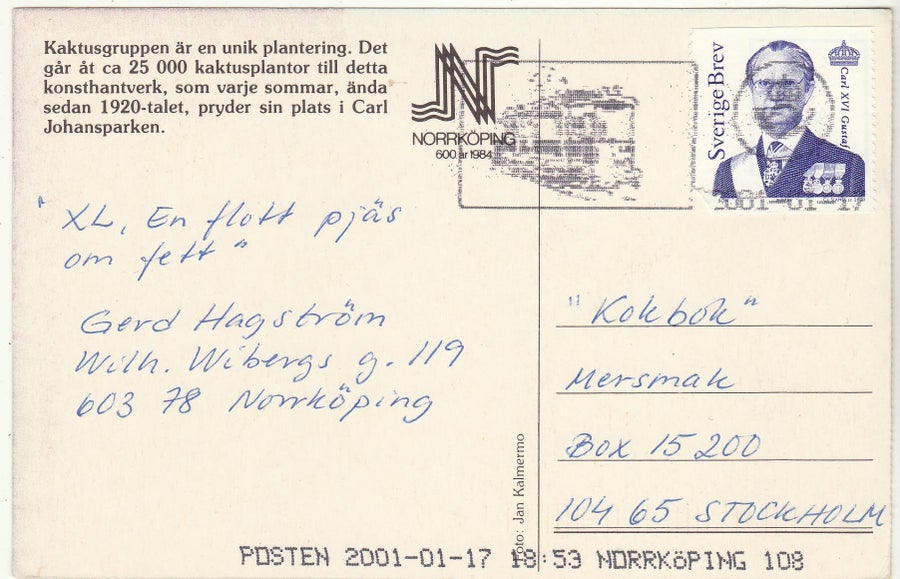 Kaktusgruppen är en unik plantering. Det
går åt ca 25 000 kaktusplantor till detta
konsthantverk, som varje sommar, ända
sedan 1920-talet, pryder sin plats i Carl
Johansparken.
NORRKÖPING
600 år 1984
Sverige Brev
Carl XVI Gustaf
2001-01-17
" XL, En flott pjäs
om fett "
Gerd Hagström
Wilh. Wibergs g. 119
603 78 Norrköping
Foto: Jan Kalmermo
" Kokbok "
Mersmak
Box 15 200
104 65 STOCKHOLM
POSTEN 2001-01-17 18:53 NORRKöPING 108